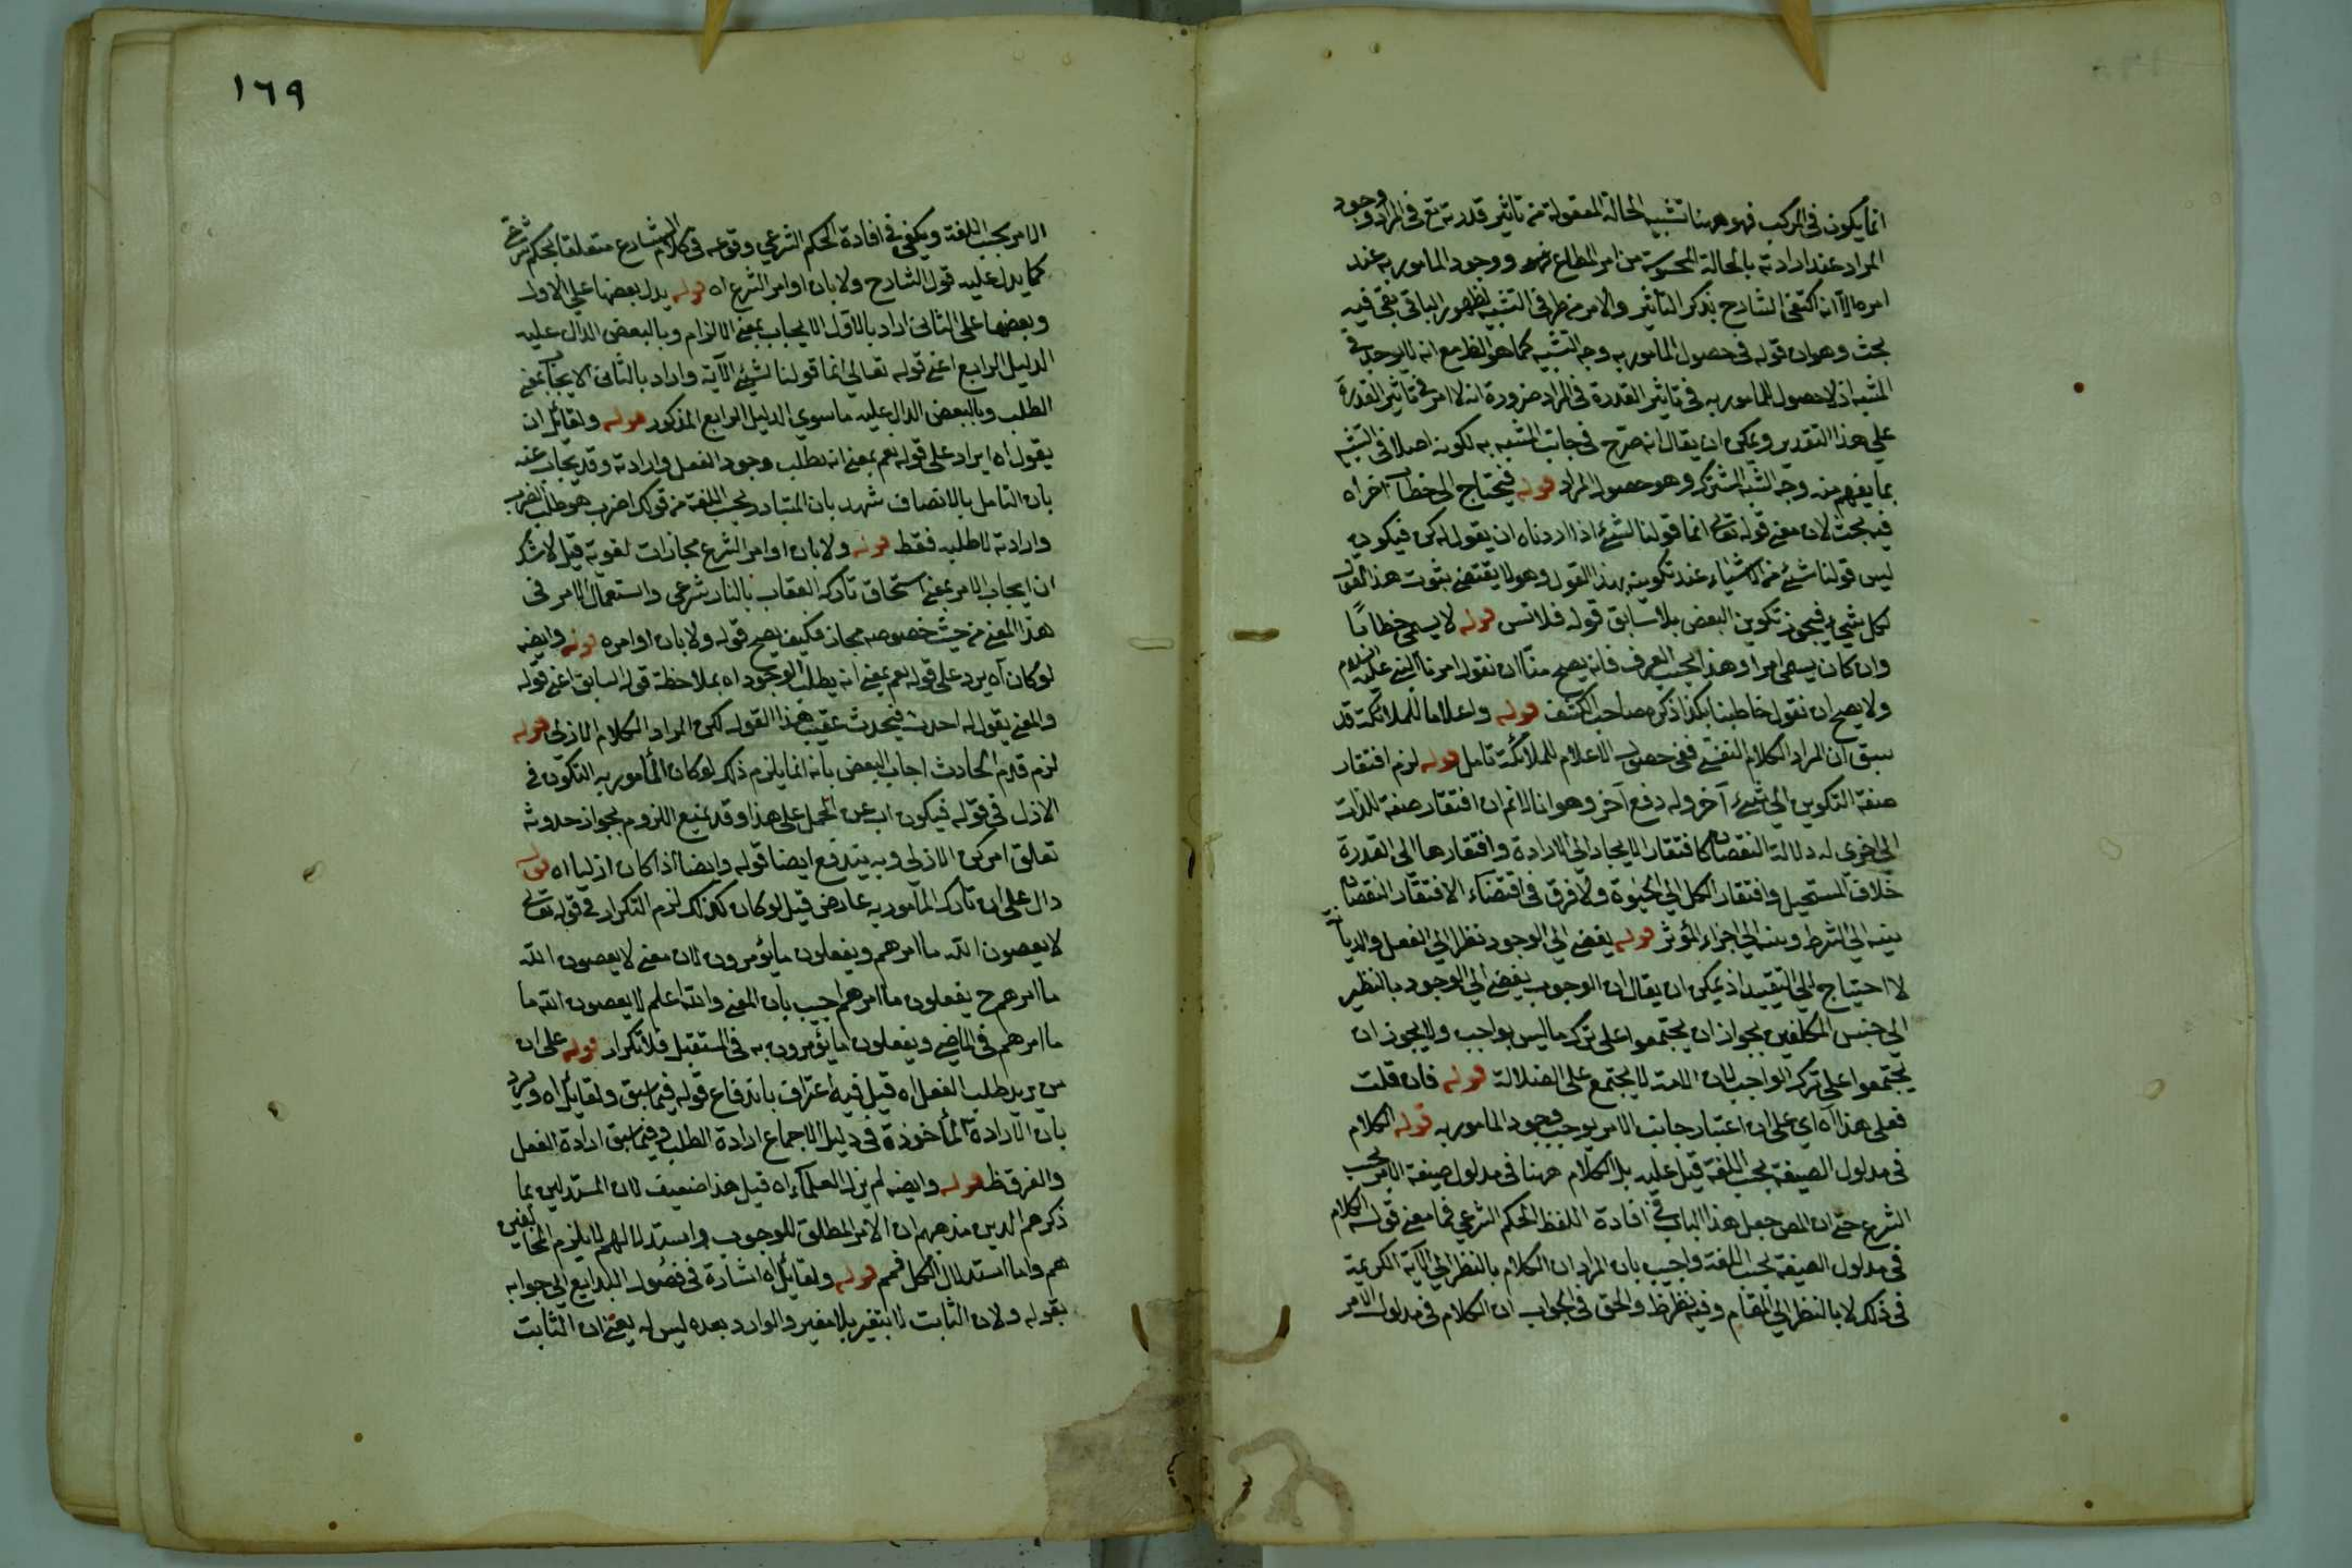 انما يكون في المركب فهو ههنا تشبيه الحالة المعقولة من تاثير قدرته تع في المراد ووجود
المراد عند ارادته بالحالة المحسوسة من امر المطاع ووجود المأمور به عند
امره الا انه اكتفى الشارح بذكر التأثير والامر من طرفي التشبيه لظهور الباقي بقي فيه
بحث وهو ان قوله في حصول المأمور به وجه التشبيه كما هو الظ مع انه لا يوجد في
المشبه اذ لا حصول للمأمور به في تأثير القدرة في المراد ضرورة انه لا امر في تأثير القدرة
على هذا التقدير ويمكن ان يقال انه صرح في جانب المشبه به لكونه اصلا في التشبيه
بما يفهم منه وجه الشبه المشترك وهو حصول المراد قوله فيحتاج الى خطاب آخر اه
فيه بحث لان معنى قوله تعالى انما قولنا لشئ اذا اردناه ان يقول له كن فيكون
ليس قولنا شئ من الاشياء عند تكوينه بهذا القول وهو لا يقتضي بثبوت هذا القول
لكل شيء فيجوز تكوين البعض بلا سابق قوله فلا تنس قوله لا يسمى خطابا
وان كان يسمى امرا وهذا بحسب العرف فانه يصح منا ان نقول امرنا النبي عليه السلام
ولا يصح ان نقول خاطبنا بكذا ذكره صاحب الكشف قوله واعلاما للملائكة قد
سبق ان المراد الكلام النفسي ففي حصول الاعلام للملائكة تامل قوله لزم افتقار
صفة التكوين الى شئ آخر وله دفع آخر وهو انا لا نم ان افتقار صفة للذات
الى اخرى له دلالة النقصان كافتقار الايجاد الى الارادة وافتقارها الى القدرة
خلاف المستحيل وافتقار الكل الى الحيوة ولا فرق في اقتضاء الافتقار النقصان
بينه الى الشرط وبينه الى اجزاء المؤثر قوله يفضي الى الوجود نظرا الى الفعل والديانة
لا احتياج الى التقييد اذ يمكن ان يقال ان الوجوب يفضي الى الوجود بالنظر
الى جنس المكلفين بجواز ان يجتمعوا على ترك ما ليس بواجب ولا يجوز ان
يجتمعوا على ترك الواجب لان الامة لا يجتمع على الضلالة قوله فان قلت
فعلى هذا اه اي على ان اعتبار جانب الامر يوجب وجود المامور به قوله الكلام
في مدلول الصيغة بحسب اللغة قيل عليه بل الكلام ههنا في مدلول صيغة الامر بحسب
الشرع حتى ان المص جعل هذا الباب في افادة اللفظ الحكم الشرعي فما معنى قوله الكلام
في مدلول الصيغة بحسب اللغة واجيب بان المراد ان الكلام بالنظر الى الآية الكريمة
في ذلك لا بالنظر الى المقام وفيه نظر ظ والحق في الجواب ان الكلام في مدلول الامر
١٦٩
الامر بحسب اللغة ويكفي في افادة الحكم الشرعي وقوعه في كلام الشارع متعلقا بحكم شرعي
كما يدل عليه قول الشارح ولا بان اوامر الشرع اه قوله يدل بعضها على الاول
وبعضها على الثاني اراد بالاول الايجاب بمعنى الالزام وبالبعض الدال عليه
الدليل الرابع اعني قوله تعالى انما قولنا لشئ الآية واراد بالثاني الايجاب بمعنى
الطلب وبالبعض الدال عليه ما سوى الدليل الرابع المذكور قوله ولقائل ان
يقول اه ايراد على قوله نعم بمعنى انه يطلب وجود الفعل وارادته وقد يجاب عنه
بان التامل بالانصاف شهد بان المتبادر بحسب اللغة من قولك اضرب هو طلب الضرب
وارادته لا طلبه فقط قوله ولا بان اوامر الشرع مجازات لغوية قيل لا شك
ان ايجاب الامر بمعنى استحقاق تاركه العقاب بالنار شرعي واستعمال الامر في
هذا المعنى من حيث خصوصه مجاز فكيف يصح قوله ولا بان اوامره قوله وايضه
لو كان اه يرد على قوله نعم بمعنى انه يطلب الوجود اه بملاحظة قوله السابق اعني قوله
والمعنى يقول له احدث فيحدث عقيب هذا القول لكن المراد الكلام الازلي قوله
لزم قدم الحادث اجاب البعض بانه انما يلزم ذلك لو كان المأمور به التكون في
الازل في قوله فيكون اب عن الحمل على هذا وقد يمنع اللزوم بجواز حدوثه
تعلق امر كن الازلي وبه يندفع ايضا قوله وايضا اذا كان ازليا اه قوله
دال على ان تارك المأمور به عارض قيل لو كان كذلك لزم التكرار في قوله تعالى
لا يعصون الله ما امرهم ويفعلون ما يؤمرون لان معنى لا يعصون الله
ما امرهم ح يفعلون ما امرهم اجيب بان المعنى والله اعلم لا يعصون الله ما
ما امرهم في الماضي ويفعلون ما يؤمرون به في المستقبل فلا تكرار قوله على ان
من يريد طلب الفعل اه قيل فيه اعتراف باندفاع قوله فيما سبق ولقائل اه ويرد
بان الارادة المأخوذة في دليل الاجماع ارادة الطلب وفيما سبق ارادة الفعل
والفرق ظ قوله وايضه لم يزل العلماء اه قيل هذا ضعيف لان المستدلين بما
ذكر هم الذين مذهبهم ان الامر المطلق للوجوب واستدلالهم لا يلزم المخالفين
هم واما استدلال الكل فمم قوله ولقائل اه اشارة في فصول البدايع الى جوابه
بقوله ولان الثابت لا يتغير بلا مغير والوارد بعده ليس له يعني ان الثابت